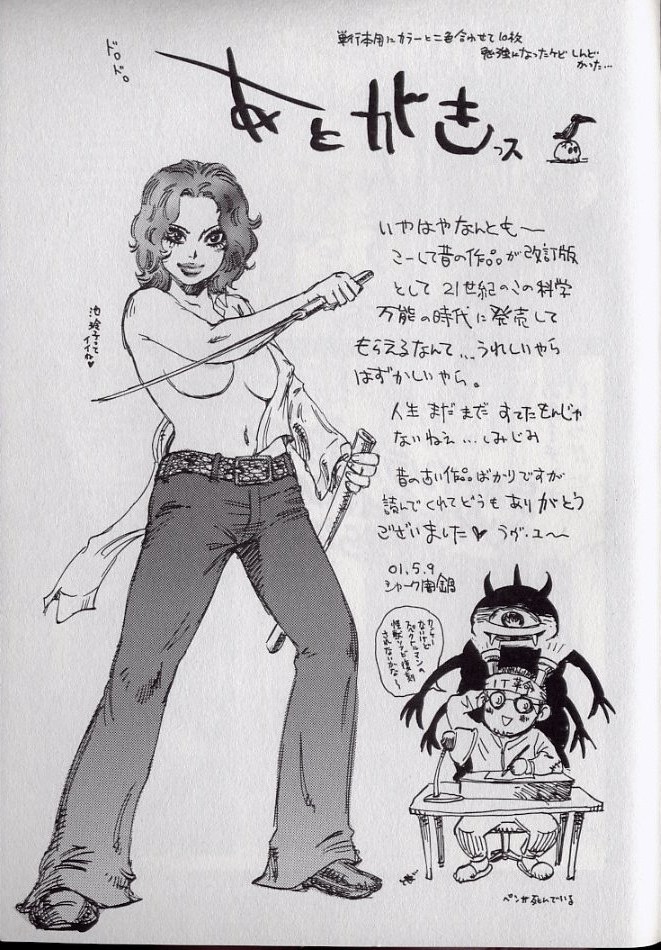 ドロドロ
単行本用にカラーと二色合わせて10枚
勉強になったケド しんど
かった…
あとがきっス
いやはやなんとも〜
こーして昔の作品が改訂版
として 21世紀のこの科学
万能の時代に発売して
もらえるなんて…うれしいやら
はずかしいやら。
人生 まだまだ すてたもんじゃ
ないねえ…しみじみ
昔の古い作品ばかりですが
読んでくれてどうも ありがとう
ございました♥ うが・ユ〜
01.5.9
池玲子って
イイね♥
カッシー
ないけど
スペクトルマンの
怪獣ソフビ復刻
されないかな〜
IT革命
ペンが死んでいる